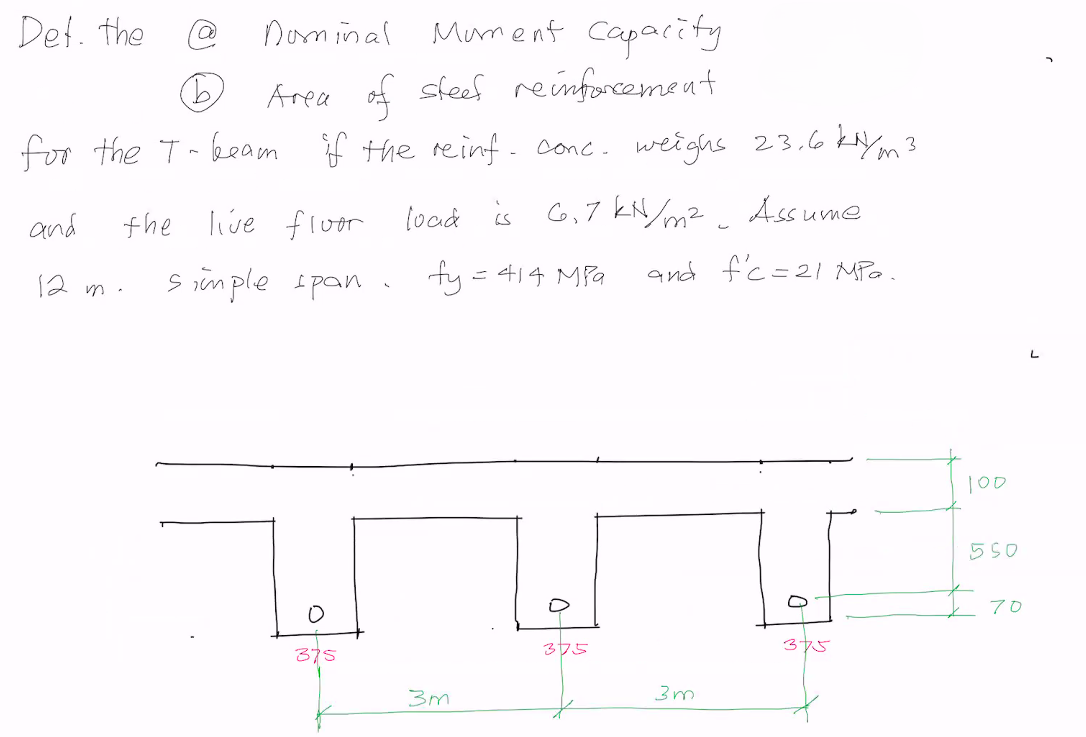 Det. the ⓐ Nominal Moment Capacity
ⓑ Area of steel reinforcement
for the T-beam if the reinf. conc. weighs 23.6 kN/m3
and the live floor load is 6.7 kN/m2. Assume
12 m. simple span. fy = 414 MPa and f'c = 21 MPa.
100
550
70
375
375
375
3m
3m